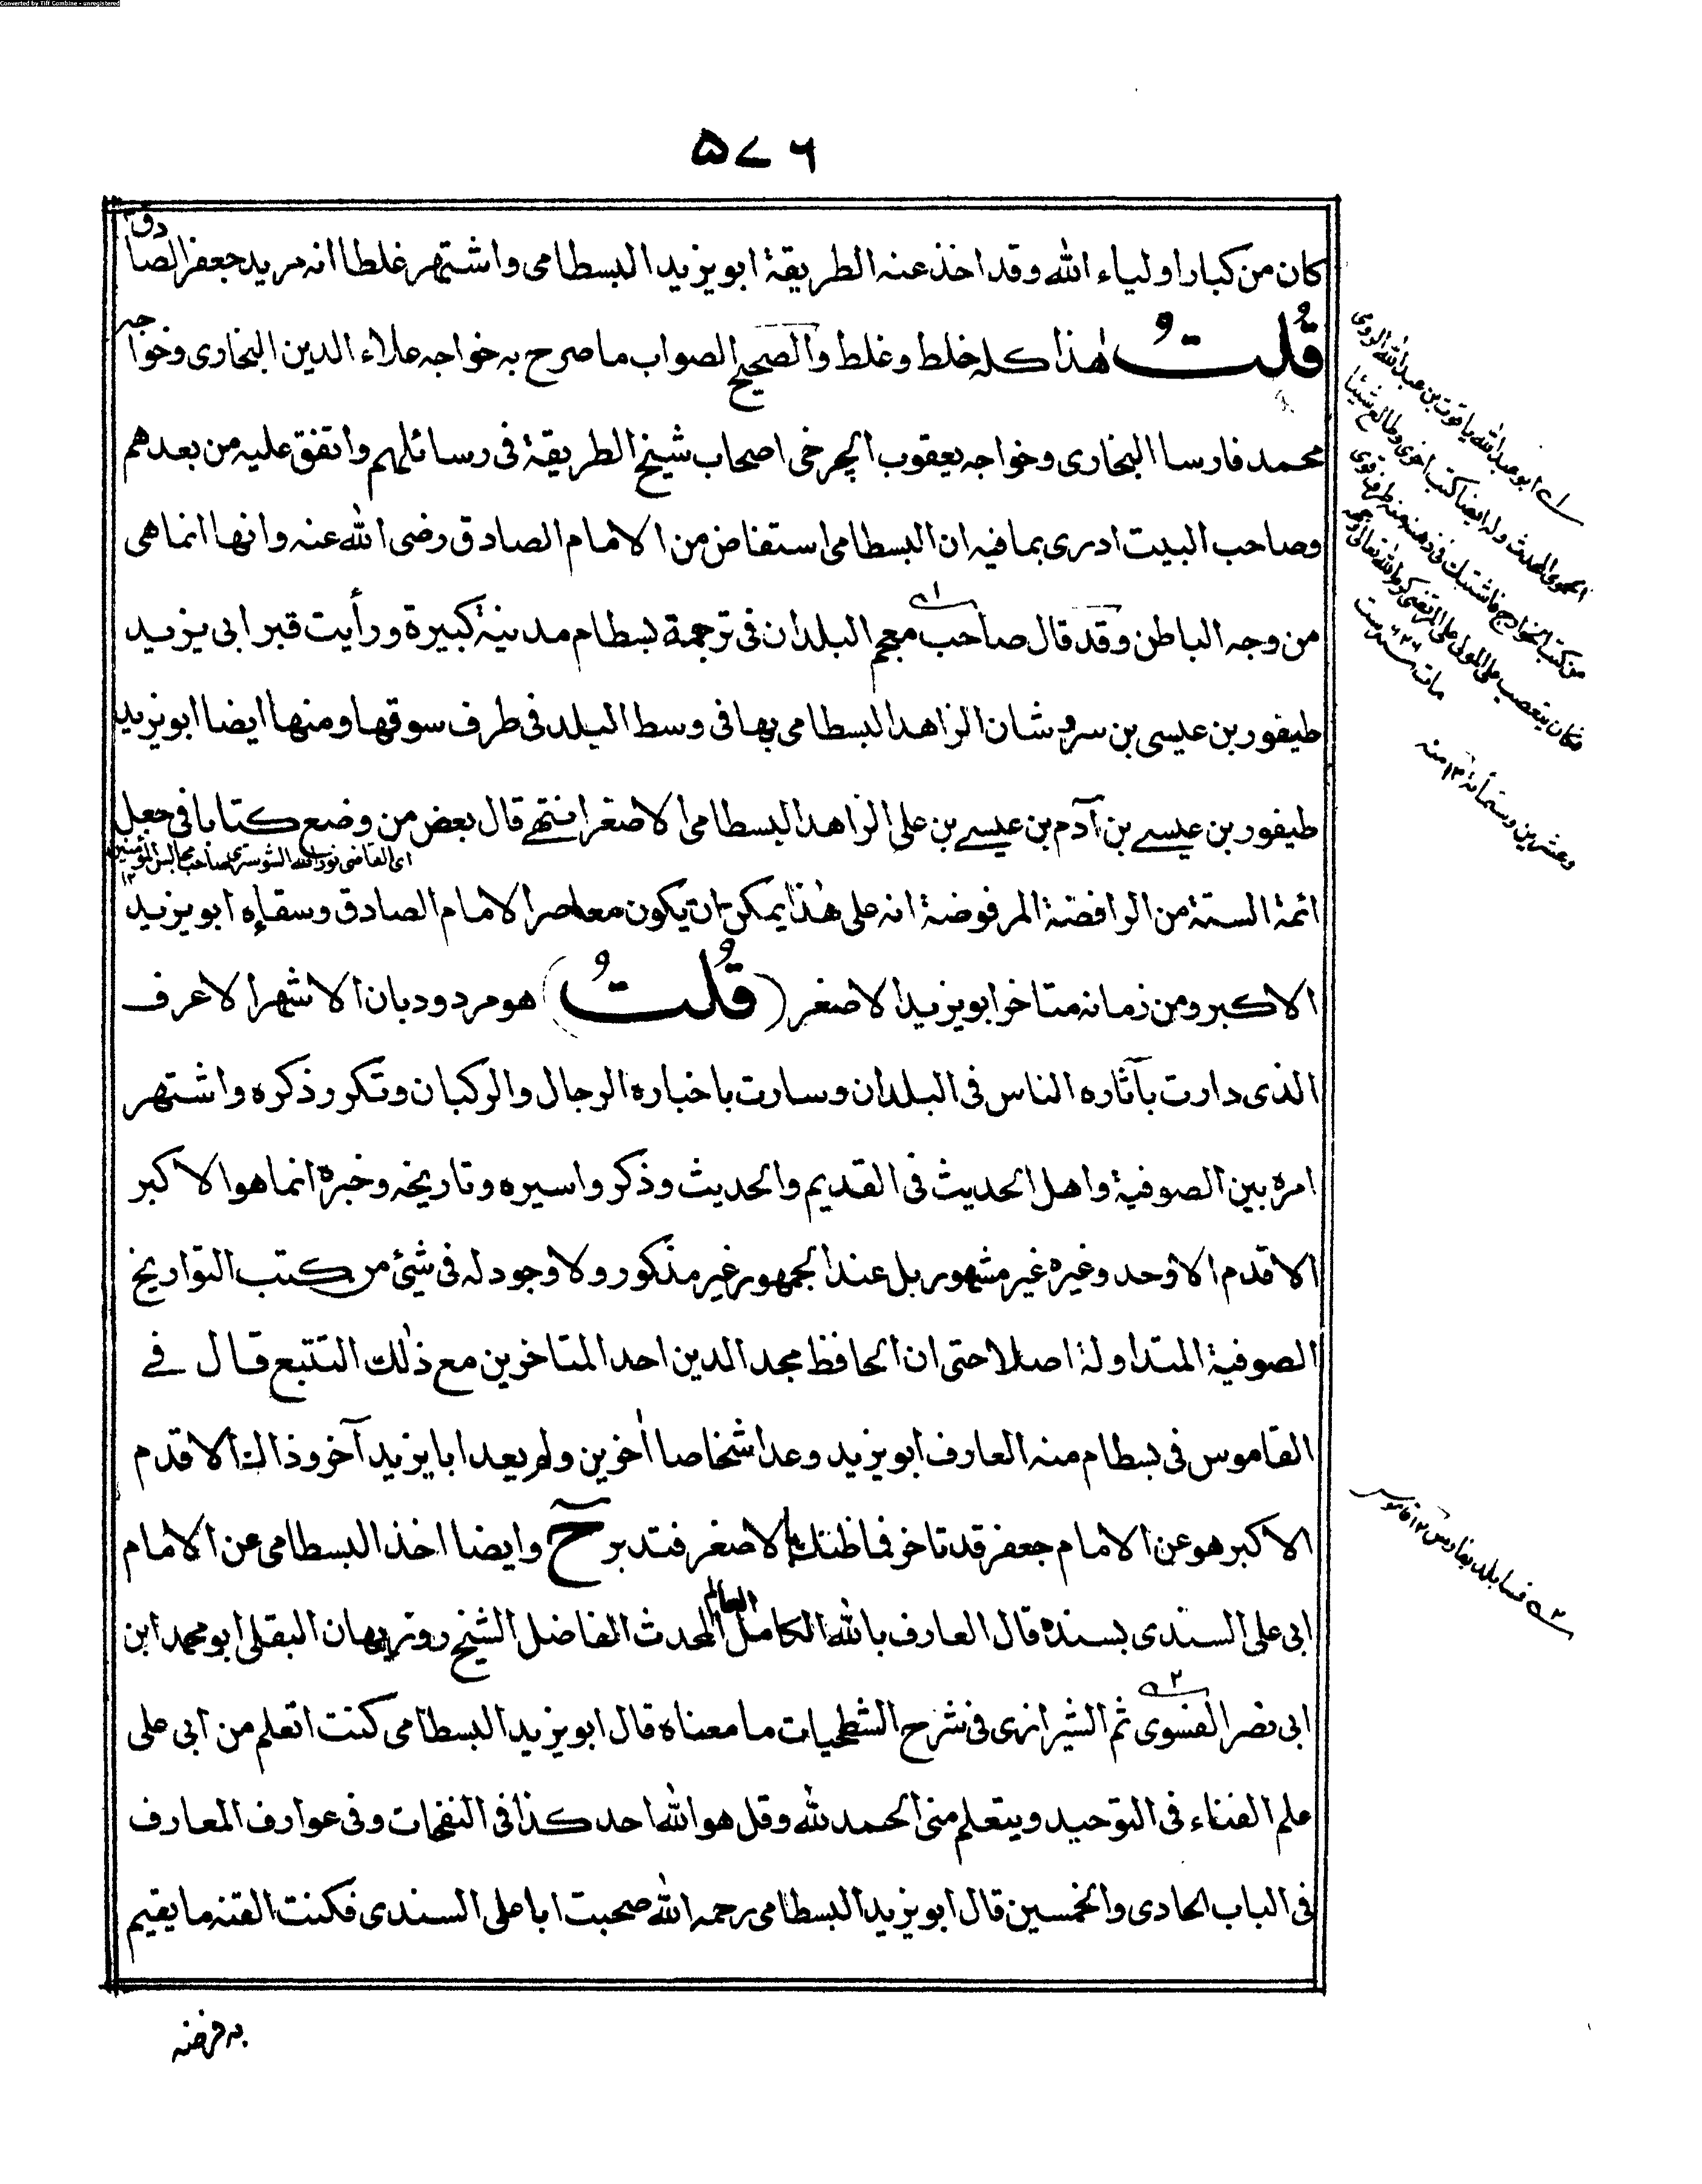 Converted by Tiff Combine - unregistered
۵۷۶
كان من كبار اولياء الله وقد اخذ عنه الطريقة ابو يزيد البسطامى واشتهر غلطا انه مريد جعفر الصادق
قُلتُ وهٰذا كله خلط وغلط والصحيح الصواب ما صرح به خواجه علاء الدين البخارى وخواجه
محمد فارسا البخارى وخواجه يعقوب الچرخى اصحاب شيخ الطريقة فى رسائلهم واتفق عليه من بعدهم
وصاحب البيت ادرى بما فيه ان البسطامى استفاض من الامام الصادق رضى الله عنه وانها انما هى
من وجه الباطن وقد قال صاحب معجم البلدان فى ترجمة بسطام مدينة كبيرة ورأيت قبر ابى يزيد
طيفور بن عيسى بن سروشان الزاهد البسطامى بها فى وسط البلد فى طرف سوقها ومنها ايضا ابو يزيد
طيفور بن عيسے بن آدم بن عيسے بن على الزاهد البسطامى الاصغر انتهے قال بعض من وضع كتابا فى جعل
اى القاضى نور الله الشوسترى صاحب مجالس المؤمنين ١٢
ائمة الستة من الرافضة المرفوضة انه على هٰذا يمكن ان يكون معاصر الامام الصادق وسقاءه ابو يزيد
الاكبر ومن زمانه متاخر ابو يزيد الاصغر (قُلتُ) هو مردود بان الاشهر الاعرف
الذى دارت بآثاره الناس فى البلدان وسارت باخباره الرجال والركبان وتكرر ذكره واشتهر
امره بين الصوفية واهل الحديث فى القديم والحديث وذكروا سيره وتاريخه وخبره انما هو الاكبر
الاقدم الاوحد وغيره غير مشهور بل عند الجمهور غير مذكور ولا وجود له فى شئ من كتب التواريخ
الصوفية المتداولة اصلا حتى ان الحافظ مجد الدين احد المتاخرين مع ذٰلك التتبع قال فے
القاموس فى بسطام منه العارف ابو يزيد وعد اشخاصا اٰخرين ولم يعد ابا يزيد آخر وذالك الاقدم
الاكبر هو عن الامام جعفر قد تاخر فما ظنك بالاصغر فتدبر ح وايضا اخذ البسطامى عن الامام
ابى على السندى بسنده قال العارف بالله الكامل العالم المحدث الفاضل الشيخ روزبهان البقلى ابو محمد ابن
ابى نصر الفسوى ثم الشيرازى فى شرح الشطحيات ما معناه قال ابو يزيد البسطامى كنت اتعلم من ابى على
علم الفناء فى التوحيد ويتعلم منى الحمد لله وقل هو الله احد كذا فى النفحات وفى عوارف المعارف
فى الباب الحادى والخمسين قال ابو يزيد البسطامى رحمه الله صحبت ابا على السندى فكنت القنه ما يقيم
به فرضه
ا ے ابو عبد الله ياقوت بن عبد الله الرومى
الحموى المحدث وله ايضا كتب اخرى وطالع شيئا
من كتب الخوارج فاشتبك فى ذهنه منه طرف قوى
فكان يتعصب على المولى على المرتضى كرم الله تعالى وجهه
مات سنة ست ٦٢٦
وعشرين وستمائة ١٢ منه
٢ ے فسا بلد بفارس ١٢ قاموس